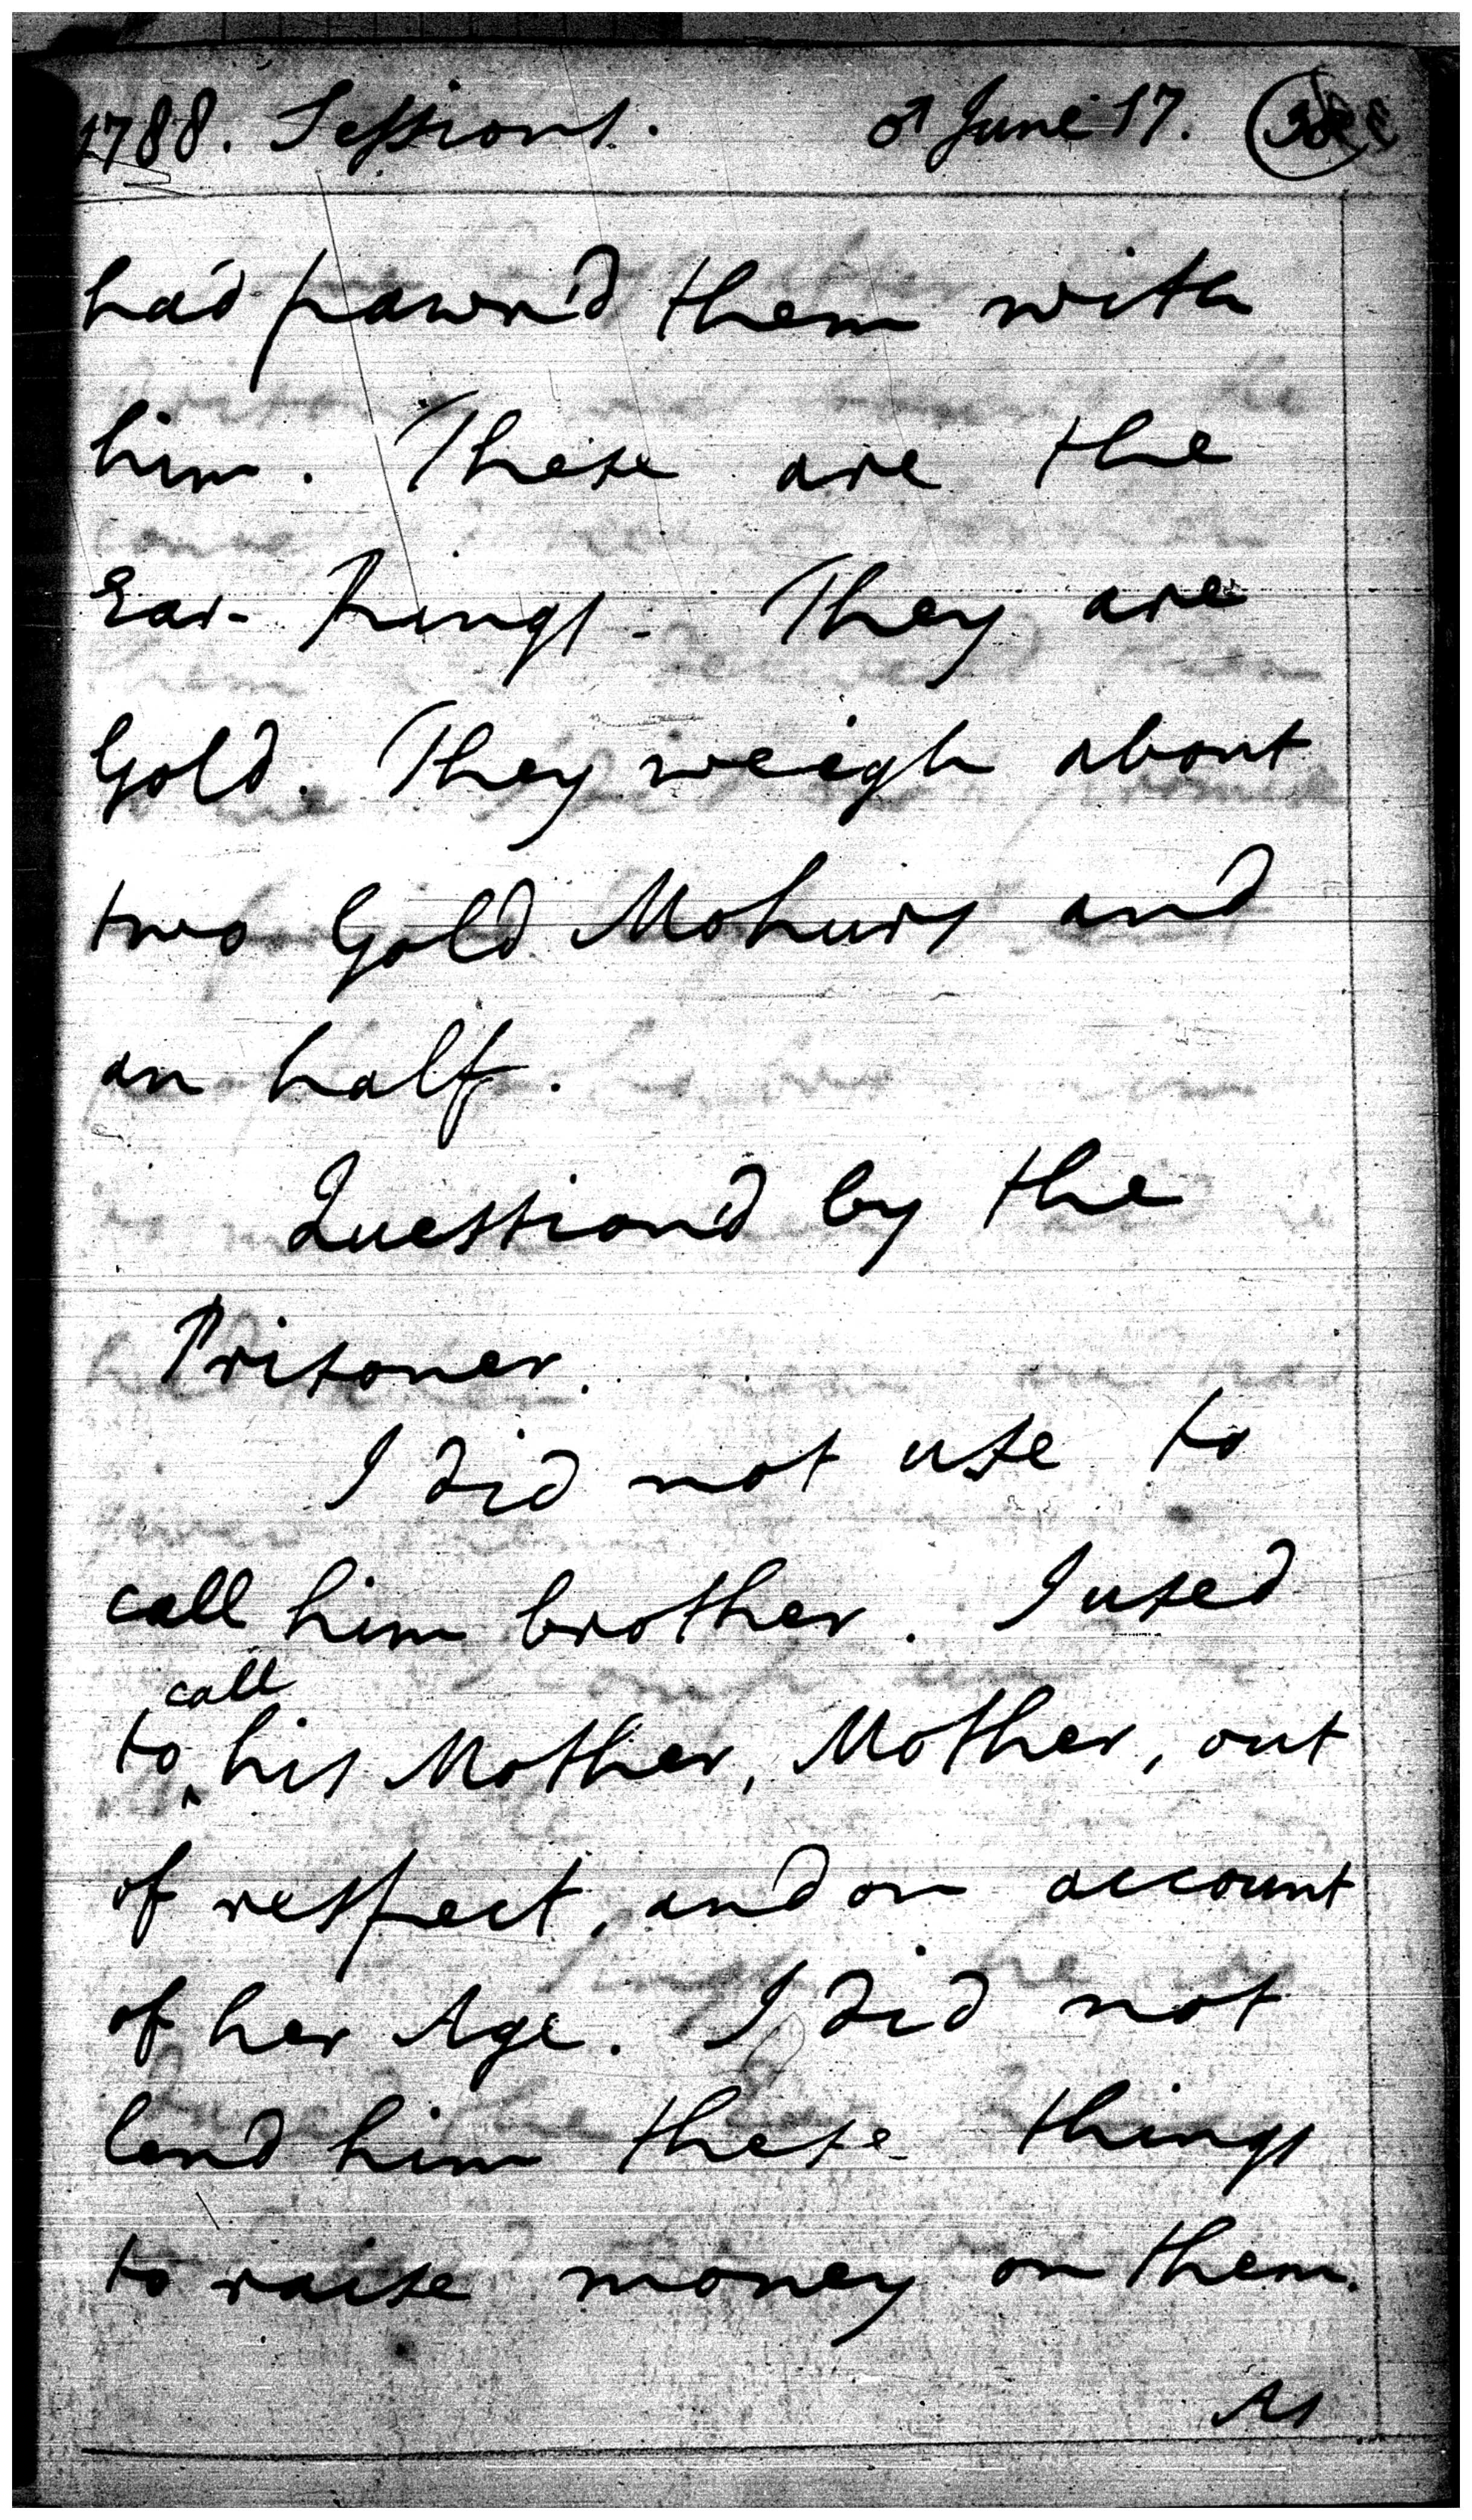 1788. Sessions. ♂ June 17.
had pawn'd them with
him. These are the
Ear-Rings. They are
Gold. They weigh about
two Gold Mohurs and
an half.
Question'd by the
Prisoner.
I did not use to
call him brother. I used
call
to ‸ his Mother, Mother, out
of respect, and on account
of her Age. I did not
lend him these things
to raise money on them.
As